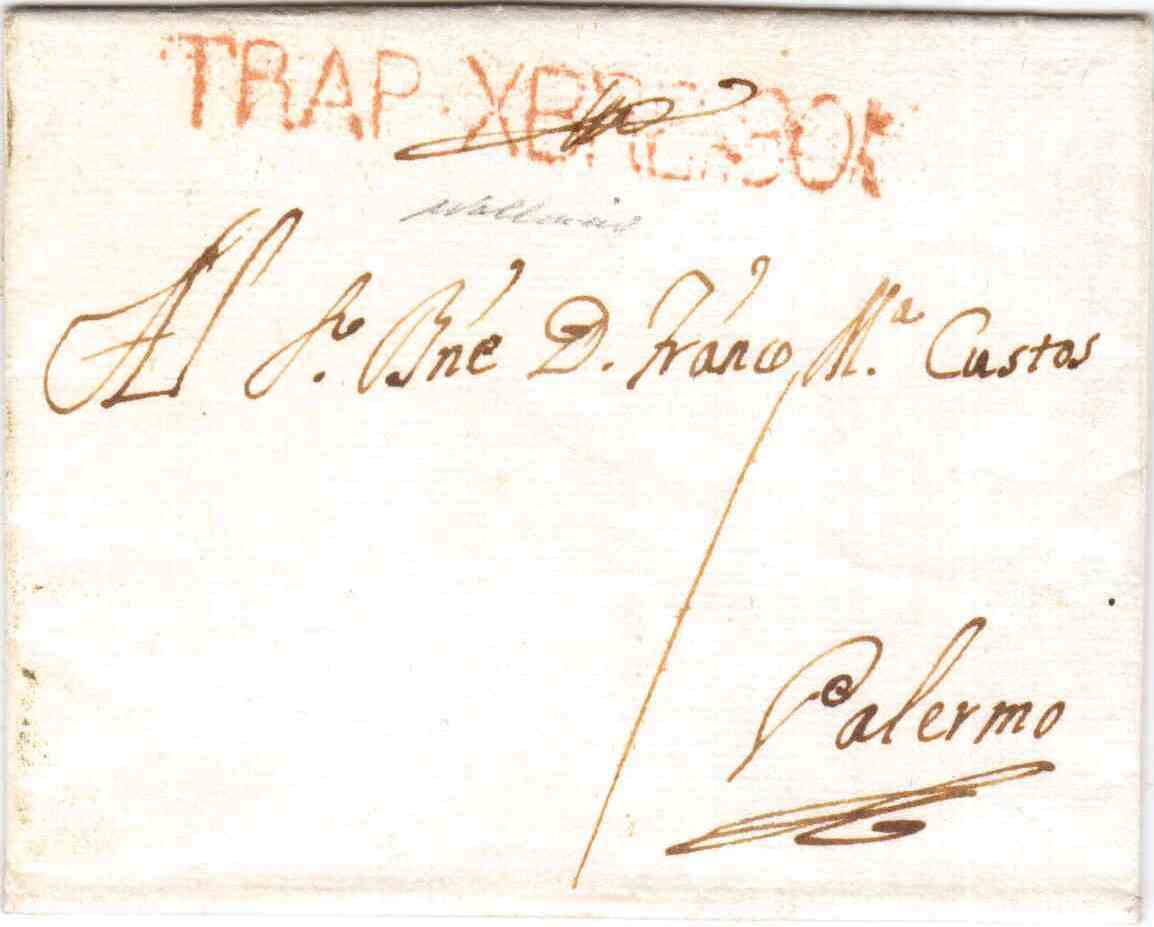 TRAP
Al Sr. Bne D. Franco Ma. Custos
Palermo